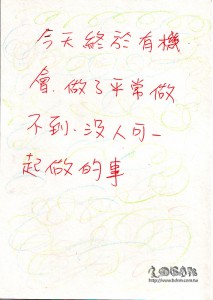 今天終於有機
會,做了平常做
不到.沒人可一
起做的事